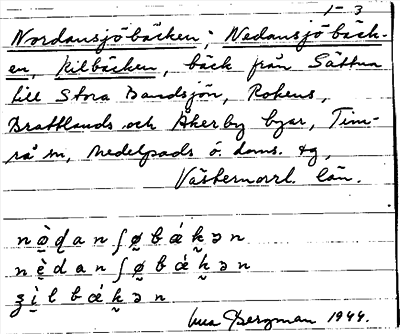 1-3
Nordansjöbäcken; Nedansjöbäck-
en, Kilbäcken, bäck från Sättna
till Stora Bandsjön, Rokens,
Brattlands och Åkerby byar, Tim-
rå sn, Medelpads ö. doms. tg,
Västernorrl. län.
nò̤ḍanʃø̤bákən
nèdanʃø̤bákən
ʒìlbákən
Bergman 1944.